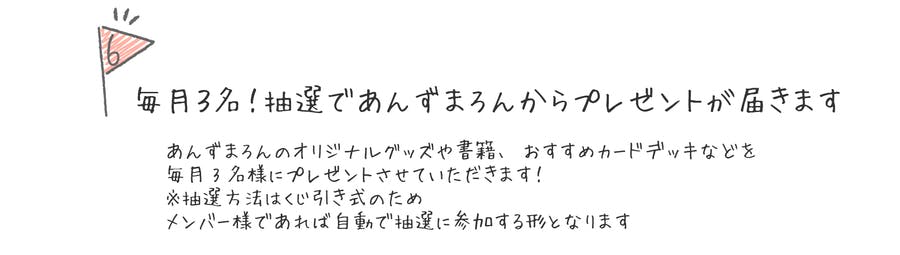 6
毎月3名!抽選であんずまろんからプレゼントが届きます
あんずまろんのオリジナルグッズや書籍、 おすすめカードデッキなどを
毎月3名様にプレゼントさせていただきます!
※抽選方法はくじ引き式のため
メンバー様であれば自動で抽選に参加する形となります